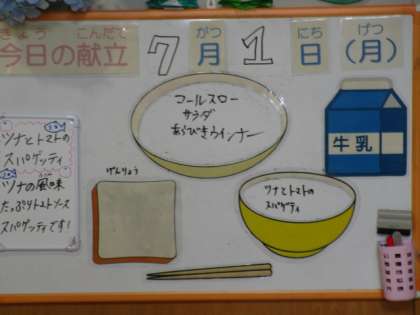 きょう こんだて がつ にち げつ
今日の献立 7月1日(月)
コールスロー
サラダ
あらびきウインナー
牛乳
ツナとトマトの
スパゲッティ
ツナの風味
たっぷりトマトソース
スパゲッティです!
げんりょう
ツナとトマトの
スパゲティ